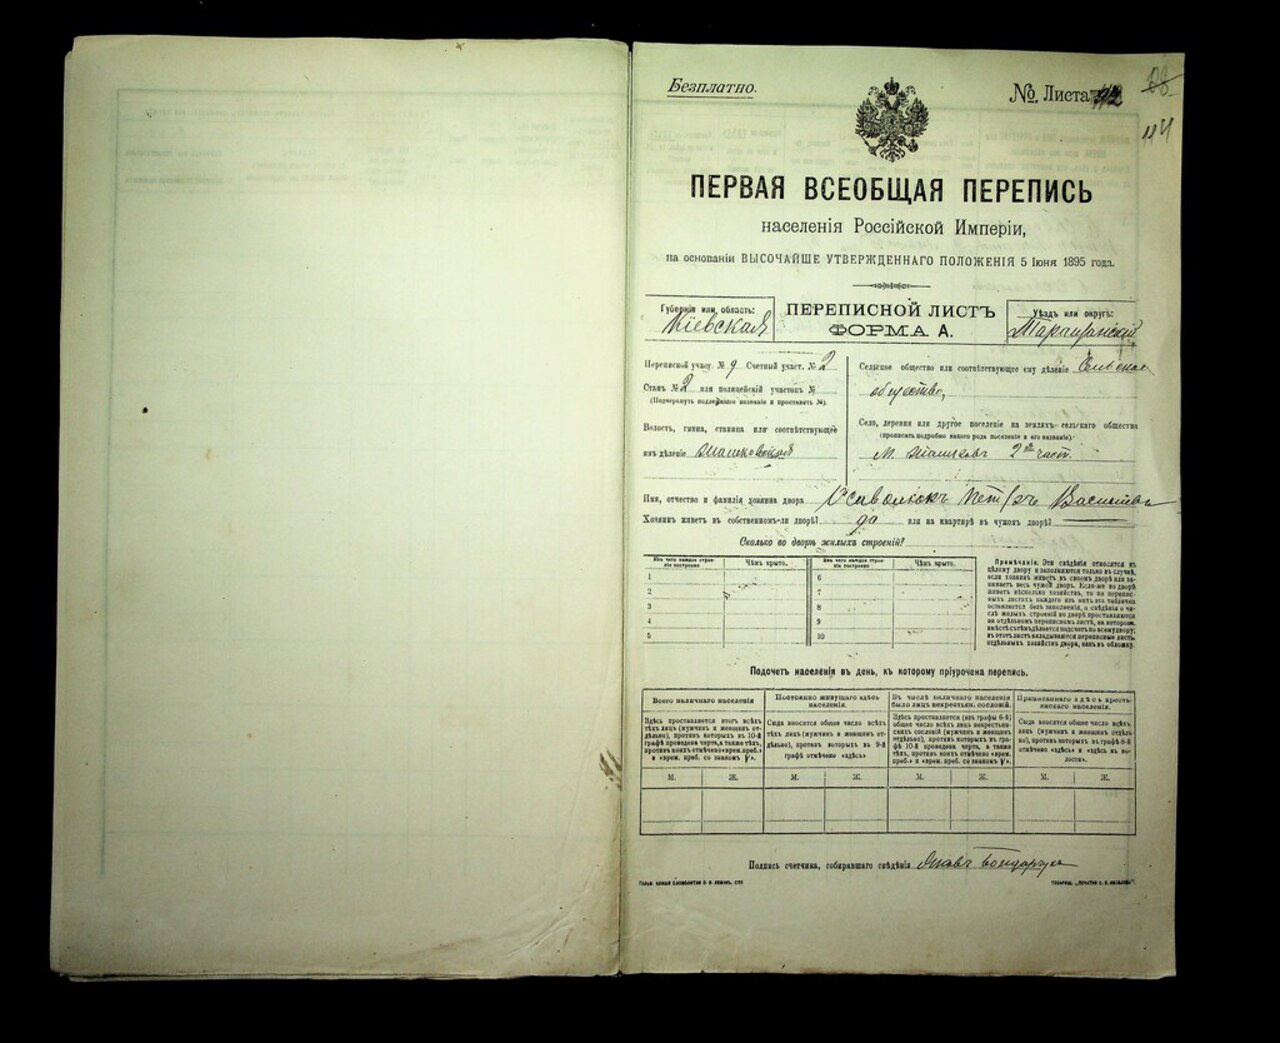 Безплатно.
№ Листа 42
114
ПЕРВАЯ ВСЕОБЩАЯ ПЕРЕПИСЬ
населенія Россійской Имперіи,
на основаніи ВЫСОЧАЙШЕ УТВЕРЖДЕННАГО ПОЛОЖЕНІЯ 5 Іюня 1895 года.
Губернія или область:
Кіевская
ПЕРЕПИСНОЙ ЛИСТЪ
ФОРМА А.
Уѣздъ или округъ:
Таращанскій
Переписной участ. № 9 Счетный участ. № 2
Станъ № 2 или полицейскій участокъ №
(Подчеркнуть подлежащее названіе и проставить №).
Волость, гмина, станица или соотвѣтствующее
имъ дѣленіе
Сельское общество или соотвѣтствующее ему дѣленіе
общество,
Село, деревня или другое поселеніе на земляхъ сельскаго общества
(прописать подробно какого рода поселеніе и его названіе).
М. 2 част.
Имя, отчество и фамилія хозяина двора Петръ
Хозяинъ живетъ въ собственномъ-ли дворѣ? да или на квартирѣ въ чужомъ дворѣ?
Сколько во дворѣ жилыхъ строеній?
Изъ чего каждое строеніе построено
Чѣмъ крыто.
Изъ чего каждое строеніе построено
Чѣмъ крыто.
1 6
2 7
3 8
4 9
5 10
Примѣчаніе. Эти свѣдѣнія относятся къ
цѣлому двору и заполняются только въ случаѣ,
если хозяинъ живетъ въ своемъ дворѣ или занимаетъ
весь чужой дворъ. Если-же во дворѣ
живетъ нѣсколько хозяйствъ, то на переписныхъ
листахъ каждаго изъ нихъ эта табличка
оставляется безъ заполненія, а свѣдѣнія о числѣ
жилыхъ строеній во дворѣ проставляются
на отдѣльномъ переписномъ листѣ, на которомъ
вмѣстѣ съ тѣмъ дѣлается подсчетъ по всему двору;
въ этотъ листъ вкладываются переписные листы
отдѣльныхъ хозяйствъ двора, какъ въ обложку.
Подсчетъ населенія въ день, къ которому пріурочена перепись.
Всего наличнаго населенія
Постоянно живущаго здѣсь населенія.
Въ числѣ наличнаго населенія было лицъ некрестьян. сословій.
Приписаннаго здѣсь крестьянскаго населенія.
Здѣсь проставляется итогъ всѣхъ
тѣхъ лицъ (мужчинъ и женщинъ отдѣльно),
противъ которыхъ въ 10-й
графѣ проведена черта, а также тѣхъ,
противъ коихъ отмѣчено «врем. преб.»
и «врем. преб. со знакомъ V».
Сюда вносится общее число всѣхъ
тѣхъ лицъ (мужчинъ и женщинъ отдѣльно),
противъ которыхъ въ 9-й
графѣ отмѣчено «здѣсь»
Здѣсь проставляется (изъ графы 6-й)
общее число всѣхъ лицъ некрестьянскихъ
сословій (мужчинъ и женщинъ
отдѣльно), противъ которыхъ въ графѣ
10-й проведена черта, а также
тѣхъ, противъ коихъ отмѣчено «врем.
преб.» и «врем. преб. со знакомъ V».
Сюда вносится общее число всѣхъ
лицъ (мужчинъ и женщинъ отдѣльно),
противъ которыхъ въ графѣ 8-й
отмѣчено «здѣсь» и «здѣсь въ волости».
М. Ж. М. Ж. М. Ж. М. Ж.
Подпись счетчика, собиравшаго свѣдѣнія